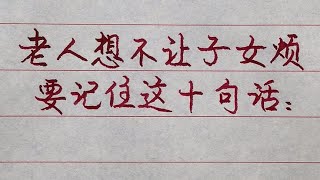 老人想不让子女烦
要记住这十句话：